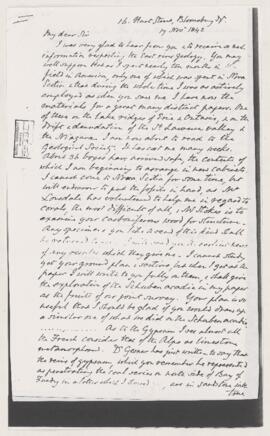 16. Hart Street, Bloomsbury Sq.
19 Novr 1842
My dear Sir
I was very glad to hear from you & to receive so much
information respecting the coast & its geology. You may
well suppose that as I spent nearly ten months in the
field in America, only one of which was spent in Nova
Scotia & that during the whole time I was as actively
employed as when you saw me I have now the
materials for a great many distinct papers. One
of these on the lake ridges of Erie & Ontario, & on the
drift & denudation of the St Lawrence valley &
the Niagara I am now about to read to the
Geological Society. It has cost me many weeks.
About 36 boxes have arrived safe, the contents of
which I am beginning to arrange in new cabinets
I cannot come to Nova Scotia for some time, but
will endeavour to put the fossils in hand, as Mr
Lonsdale has volunteered to help me in regard to
corals the most difficult of all, & Mr Stokes is to
examine your coniferous wood for structure.
Any specimens you like to send of this kind shall
be referred to
of any
your ground plan
paper I will write to you fully on them, & shall give
the exploration of the Shubenacadie in my paper
as the fruits of our joint survey. Your plan is so
good that I should be glad if you would draw up
a similar one of what we did on the Shubenacadie
As to the Gypsum I see almost all
the French consider that of the Alps as limestone
metamorphosed. Dr Gesner has just written to say that
the veins of gypsum which you remember he represented
as penetrating the coal series on both sides of Bay of
Fundy in a letter which I have are in sandstone like